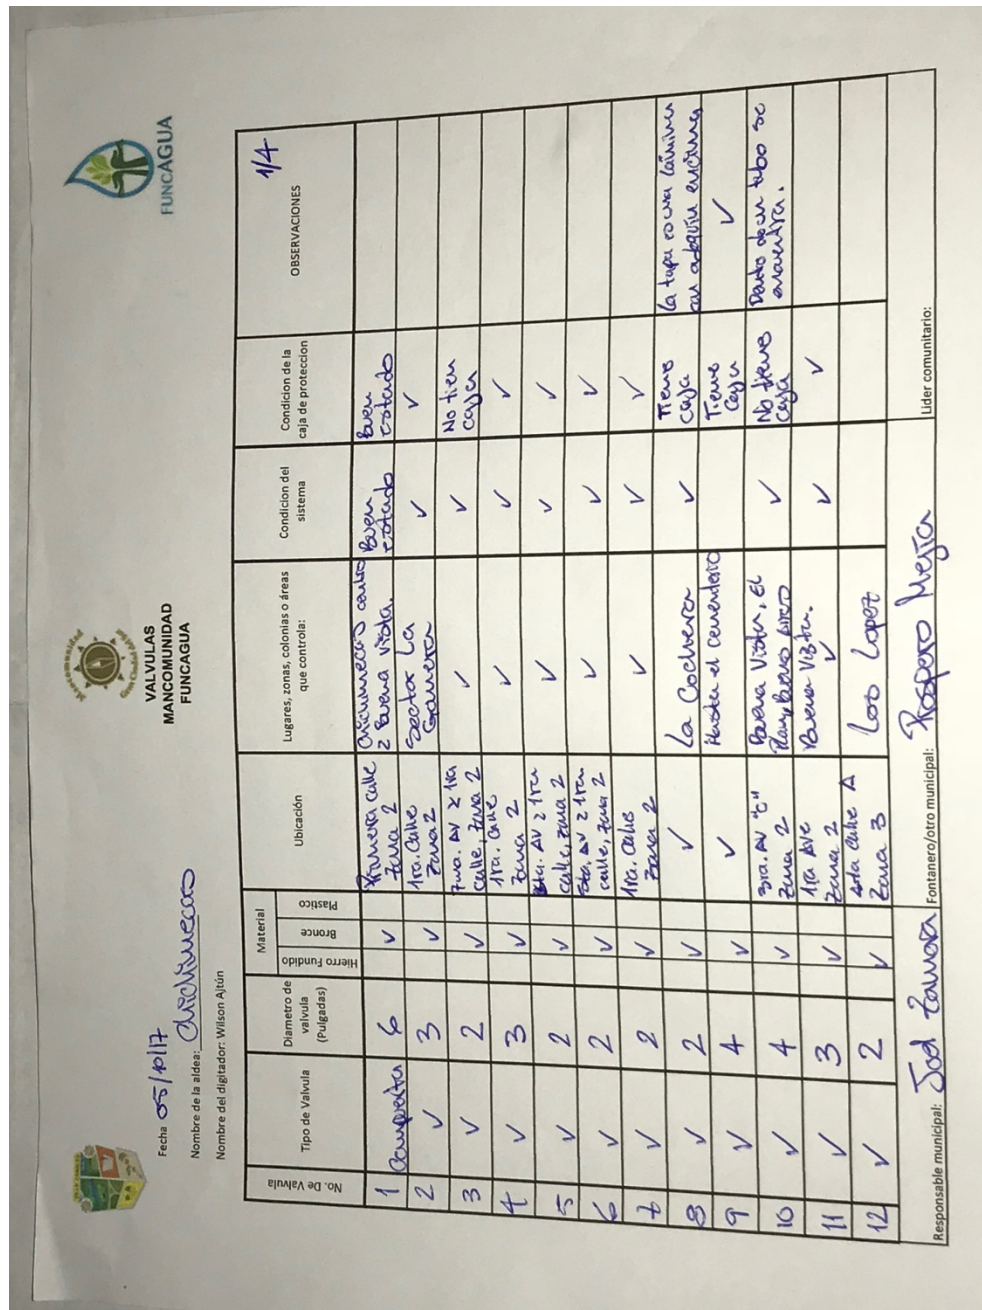 FUNCAGUA
VALVULAS
MANCOMUNIDAD
FUNCAGUA
Fecha 05/10/17
Nombre de la aldea: Chichimecas
Nombre del digitador: Wilson Ajtún
1/4
No. De Valvula Tipo de Valvula Diametro de valvula (Pulgadas) Material Hierro Fundido Bronce Plastico Ubicación Lugares, zonas, colonias o áreas que controla: Condicion del sistema Condicion de la caja de proteccion OBSERVACIONES
1 Compuerta 6 ✓ Primera calle zona 2 Chichimecas centro 2 Buena vista. Buen estado Buen estado
2 ✓ 3 ✓ 1ra. Calle zona 2 Sector La Gomera ✓ ✓
3 ✓ 2 ✓ 7ma. AV 2 1ra calle, zona 2 ✓ ✓ No tien caja
4 ✓ 3 ✓ 1ra. Calle zona 2 ✓ ✓ ✓
5 ✓ 2 ✓ AV 2 1ra calle, zona 2 ✓ ✓ ✓
6 ✓ 2 ✓ AV 2 1ra. calle, zona 2 ✓ ✓ ✓
7 ✓ 2 ✓ 1ra. Calle zona 2 ✓ ✓ ✓
8 ✓ 2 ✓ ✓ La Cochera ✓ Tiene caja La tapa es una lámina con adoquín encima
9 ✓ 4 ✓ ✓ Hasta el cementerio Tiene caja ✓
10 ✓ 4 ✓ 3ra. AV "C" zona 2 Buena Vista, El Plan, Buenos Aires ✓ No tiene caja Dentro de un tubo se encuentra.
11 ✓ 3 ✓ 1ra Ave zona 2 Buena Vista. ✓ ✓ ✓
12 ✓ 2 ✓ 4ta calle A zona 3 Los Lopez
Responsable municipal: Joel Zamora Fontanero/otro municipal: Prospero Mejia Lider comunitario: